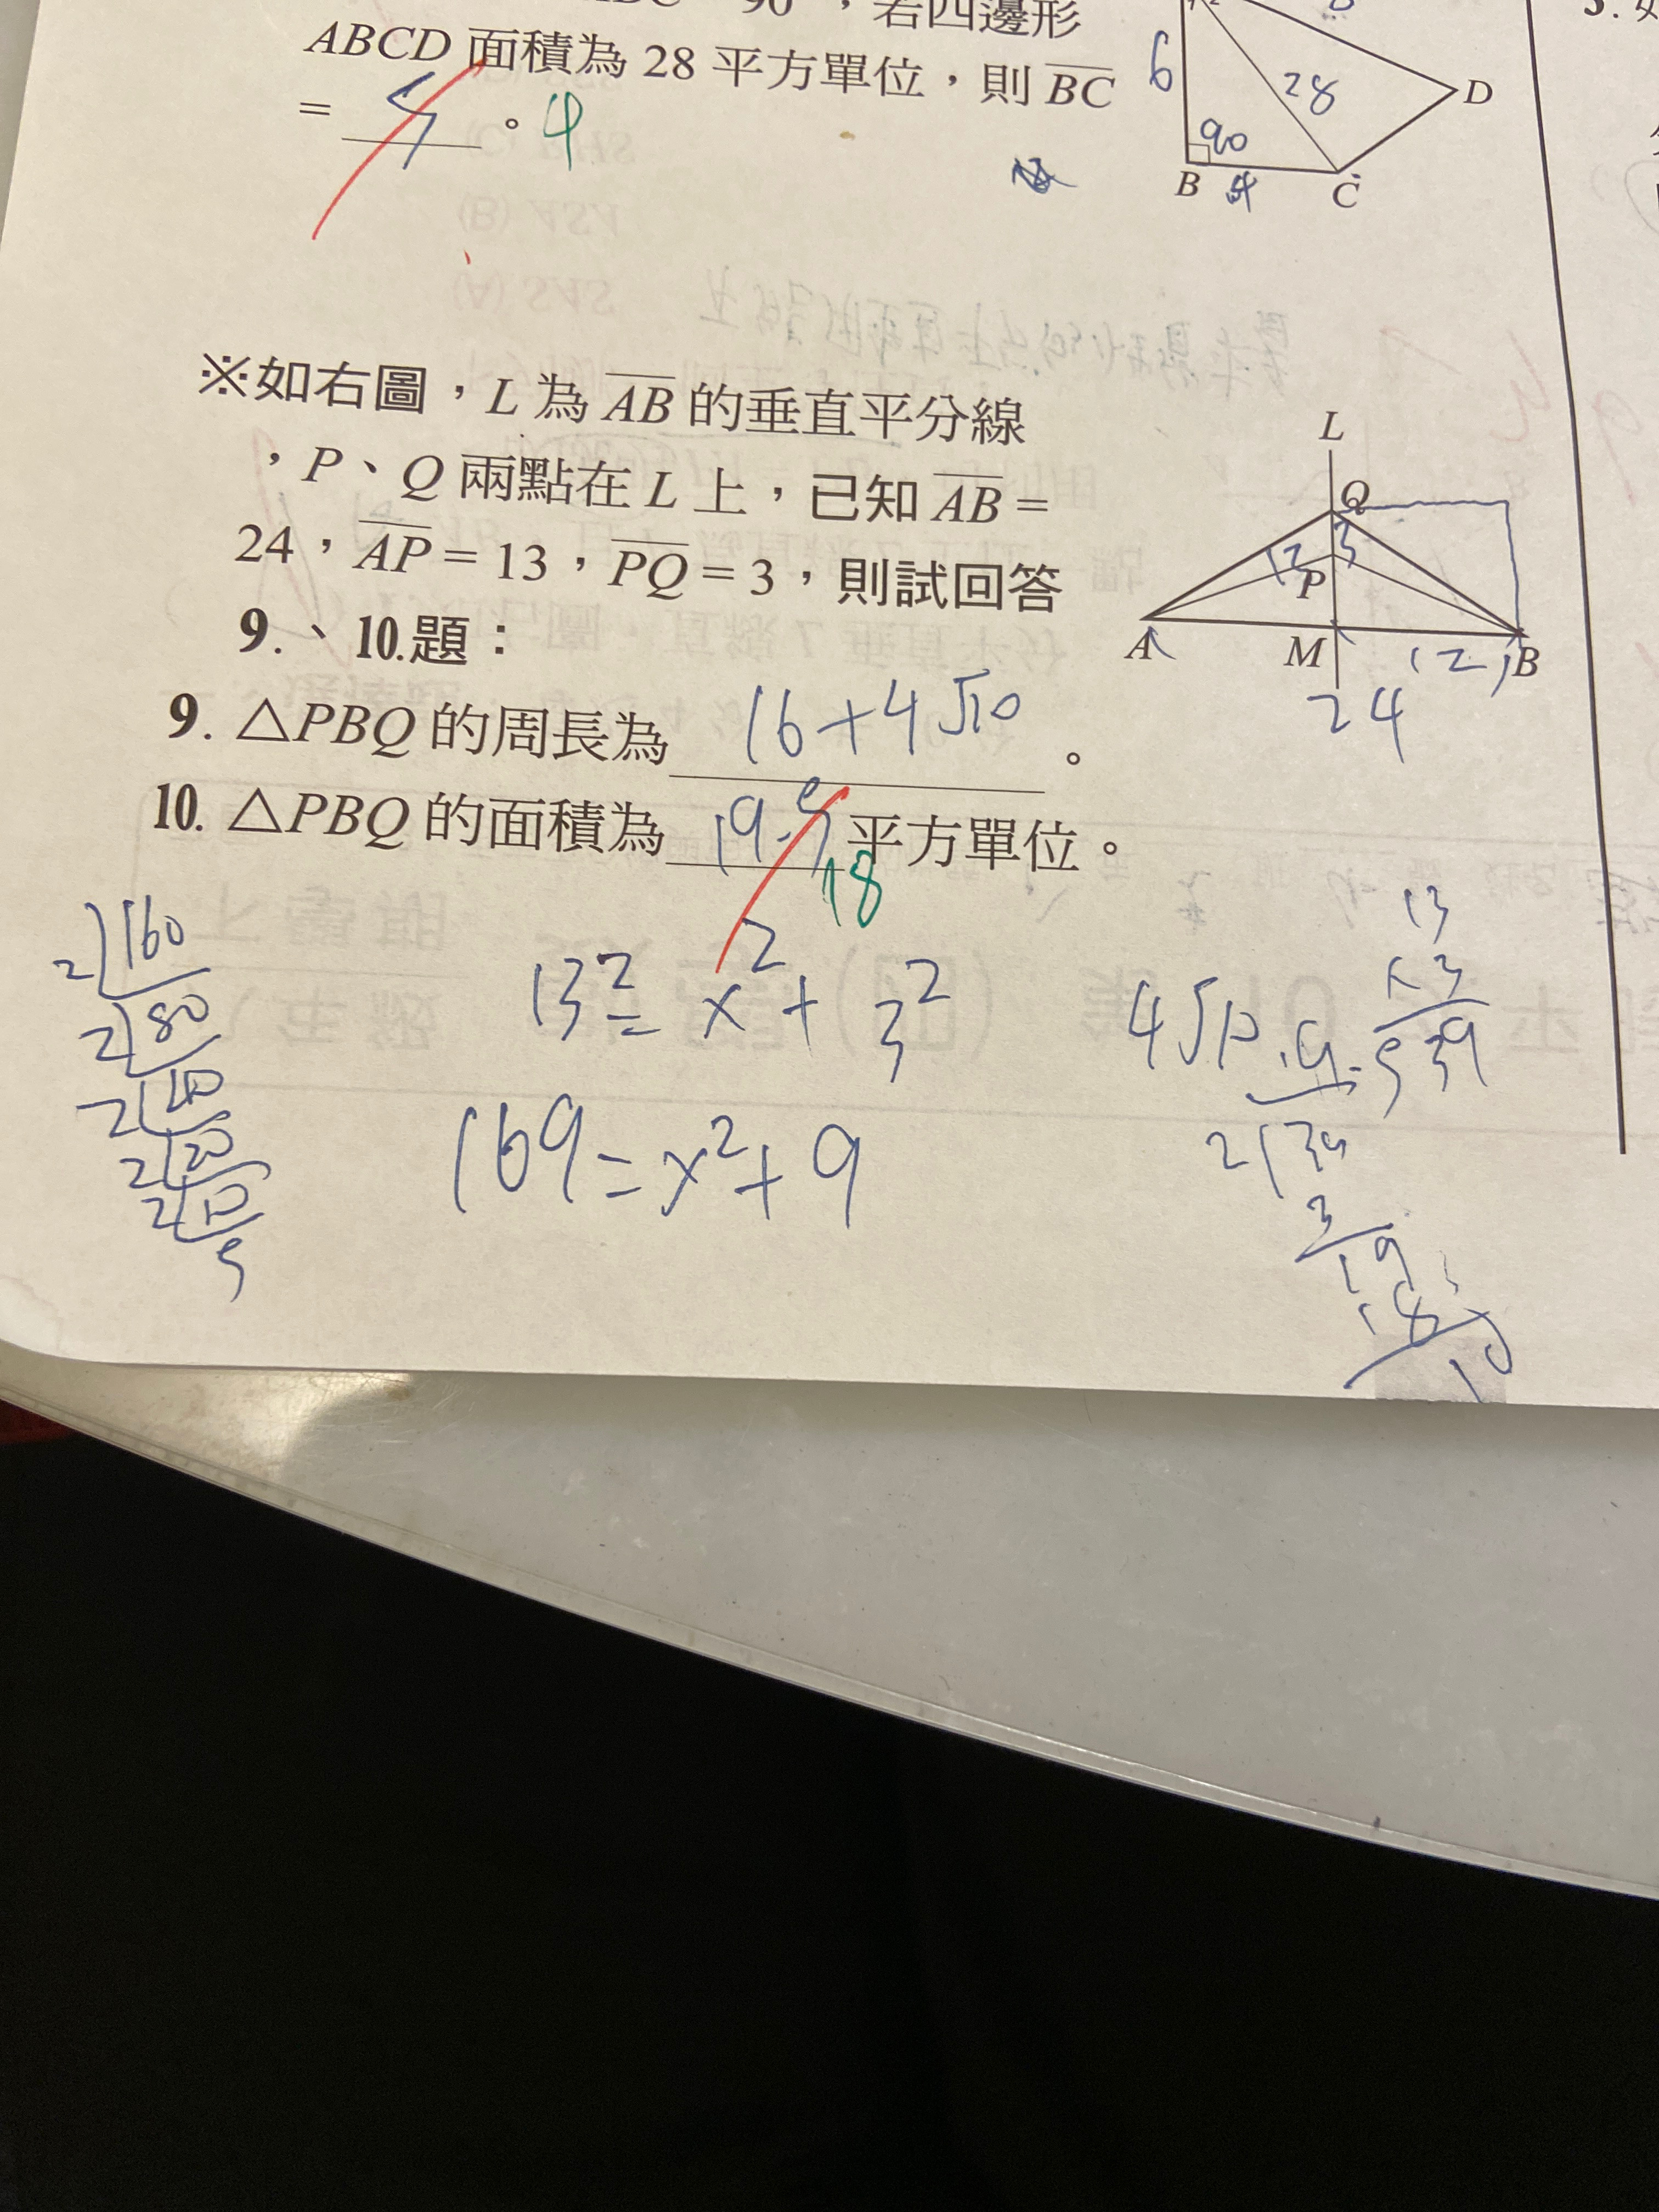 90°，若四邊形
ABCD 面積為 28 平方單位，則 BC
= 。4
6
28
90
B
4
C
D
※如右圖，L 為 AB 的垂直平分線
，P、Q 兩點在 L 上，已知 AB =
24，AP = 13，PQ = 3，則試回答
9.、10.題：
L
Q
13
3
P
A
M
12
B
24
9. △PBQ 的周長為 16+4√10 。
10. △PBQ 的面積為 19.5 平方單位。
18
2)160
2)80
2)40
2)20
2)10
5
13²=x²+3²
169=x²+9
4√10
13
×3
39
19.5
2)39
19
18
10